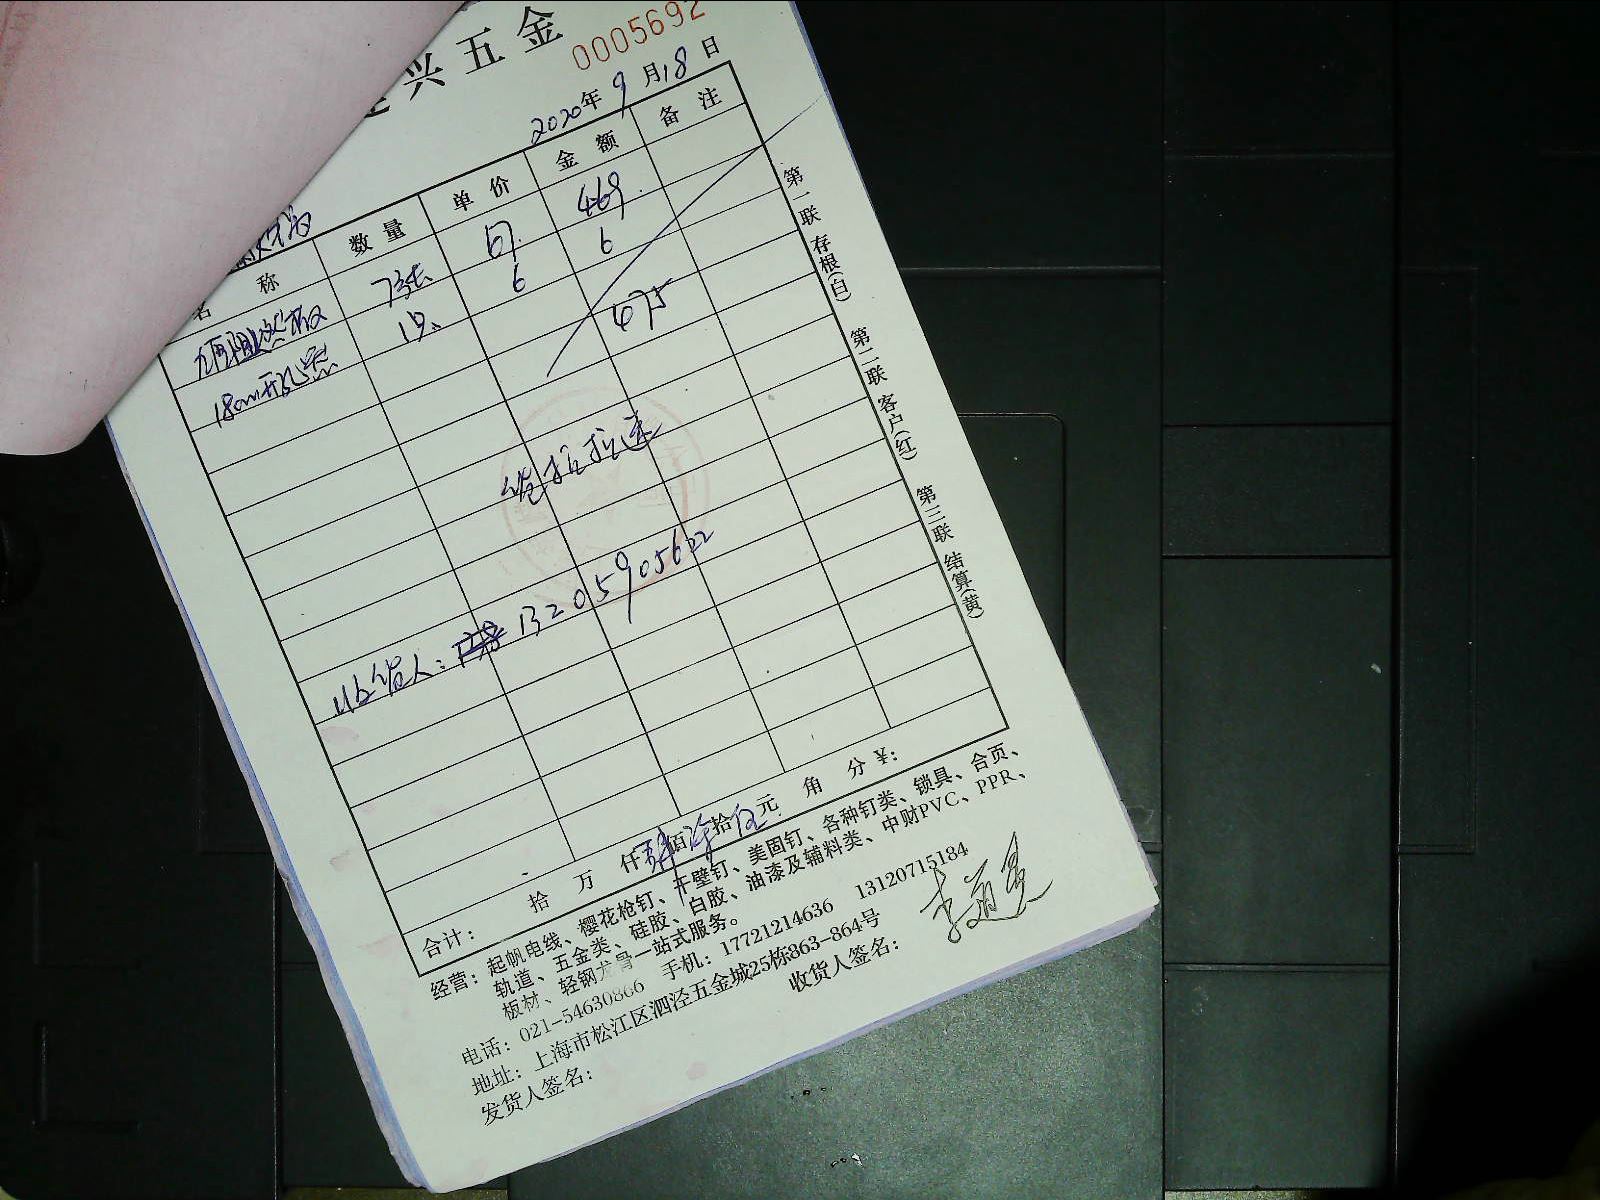 兴五金
0005692
2020年9月18日
名称 数量 单价 金额 备注
阻燃板 7张 67. 469.
18cm开孔器 1只 6 6
475
货拉拉送
收货人: 13205905622
合计: 拾 万 仟 肆佰 柒拾 伍元 角 分 ¥:
经营: 起帆电线、樱花枪钉、干壁钉、美固钉、各种钉类、锁具、合页、
轨道、五金类、硅胶、白胶、油漆及辅料类、中财PVC、PPR、
板材、轻钢龙骨一站式服务。
电话: 021-54630866 手机: 17721214636 13120715184
地址: 上海市松江区泗泾五金城25栋863-864号
发货人签名: 收货人签名:
第一联 存根(白) 第二联 客户(红) 第三联 结算(黄)